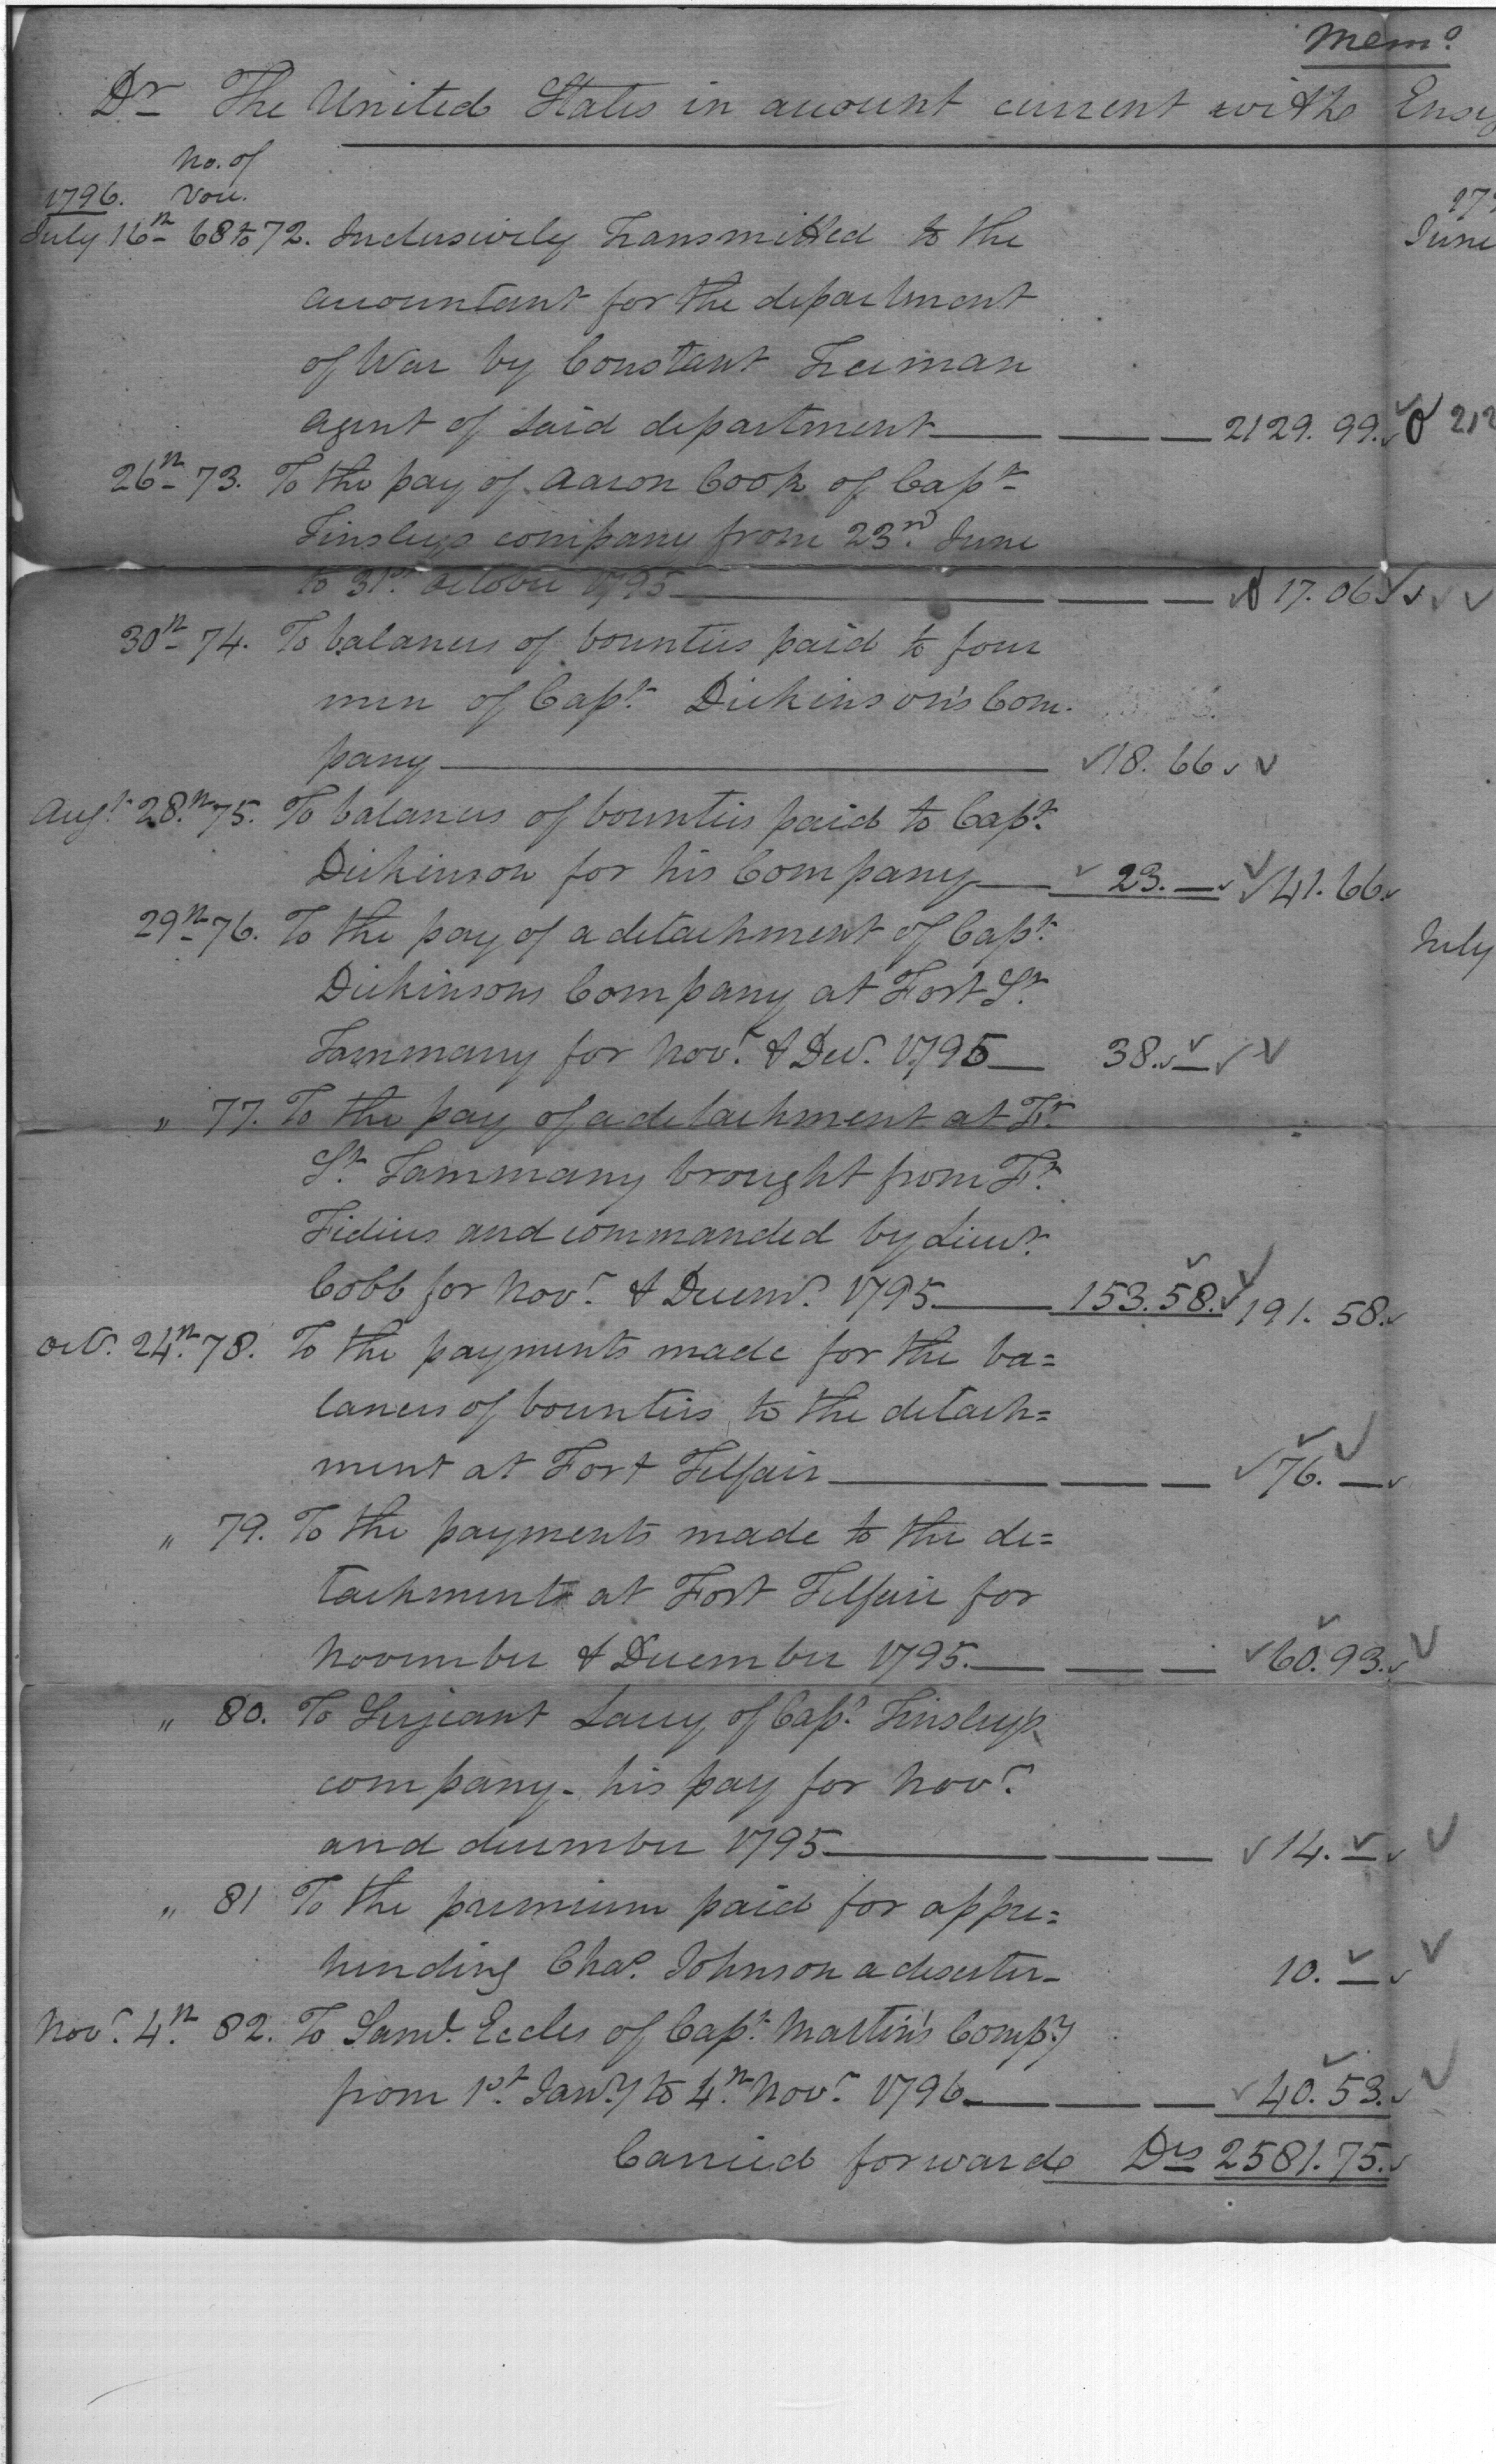 Mem.o
Dr The United States in account current withe Ensig
No. of
1796. Vou.
July 16th 68 to 72. Inclusively Transmitted to the
accountant for the department
of War by Constant Freeman
agent of said department 2129. 99. 212
26th 73. To the pay of Aaron Cook of Capt.
Tinsleys company from 23rd. June
to 31st. October 1795 17. 06
30th 74. To balances of bounties paid to four
men of Capt. Dickinson's Com.
pany 18. 66
Augt. 28.th 75. To balances of bounties paid to Capt.
Dickinson for his Company 23. — 41. 66
29th 76. To the pay of a detachment of Capt.
Dickinsons Company at Fort St.
Tammany for Novr. & Decr. 1795 38. —
" 77. To the pay of a detachment at Ft.
St. Tammany brought from Ft.
Fidius and commanded by Lieut.
Cobb for Novr. & Decemr. 1795 153. 58. 191. 58.
Octr. 24th. 78. To the payments made for the ba=
lances of bounties to the detach=
ment at Fort Telfair 76. —
" 79. To the payments made to the de=
tachment at Fort Telfair for
November & December 1795. 60. 93.
" 80. To Serjeant Lacey of Capt. Tinsleys
company - his pay for Novr.
and december 1795 14. —
" 81 To the premium paid for appre=
hending Chas. Johnson a deserter - 10. —
Novr. 4th. 82. To Saml. Eccles of Capt. Martin's Compy
from 1st. Jany. to 4th. Novr. 1796 40. 53.
Carried forwarde Drs 2581. 75.
17
June
July